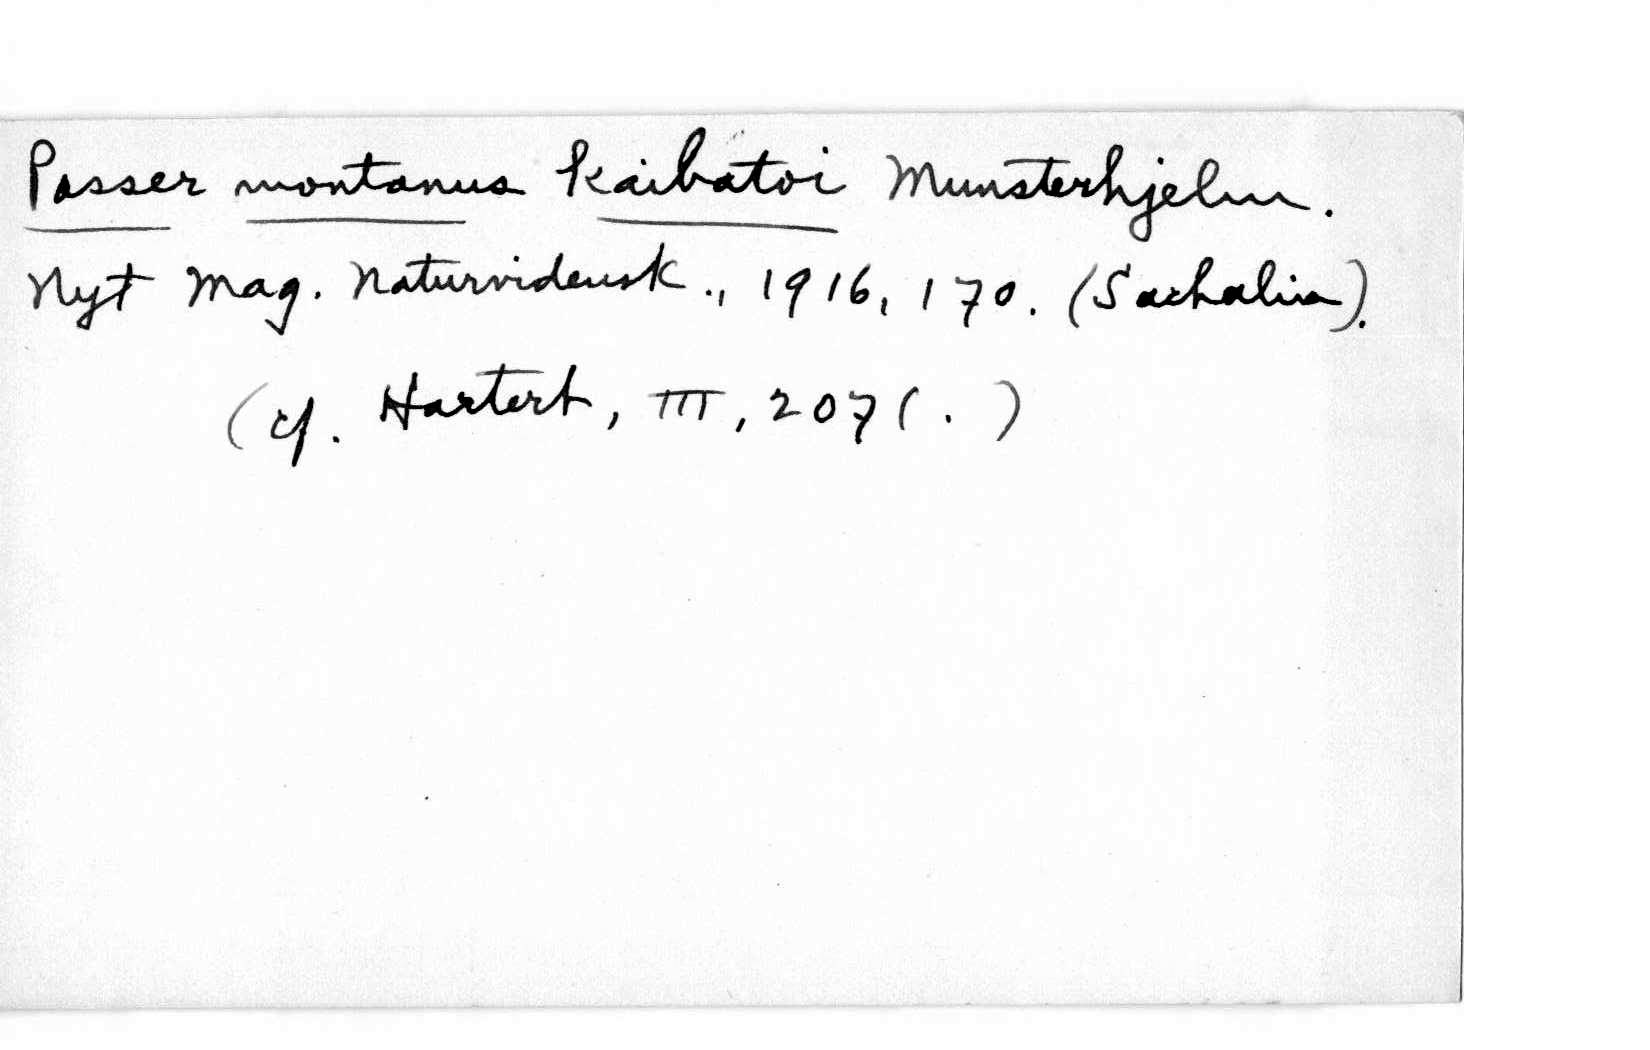 Passer montanus kaibatoi Munsterhjelm.
Nyt Mag. Naturvidensk., 1916, 170. (Sachalin).
(cf. Hartert, III, 207( . )